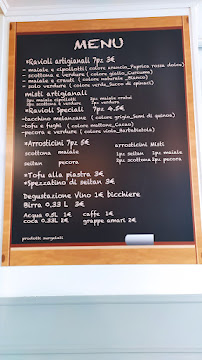 MENU
*Ravioli artigianali 7pz 3€
- maiale e cipollotti( colore arancio_Paprica rossa dolce)
- scottona e verdura ( colore giallo_Curcuma)
- maiale e crauti ( colore naturale _Bianco)
- solo verdura ( colore verde_Succo di spinaci)
misti artigianali
2pz maiale cipollotti 2pz maiale crauti
2pz scottona verdura 1pz verdura
*Ravioli Speciali 7pz 4,5€
-tacchino melanzane ( colore grigio_Semi di quinoa)
-tofu e funghi ( colore mattone_Cacao)
-pecora e verdure ( colore viola_Barbabietola)
*Arrosticini 7pz 5€ arrosticini Misti
scottona maiale 1pz seitan 2pz maiale
seitan pecora 2pz scottona 2pz pecora
*Tofu alla piastra 3€
*Spezzatino di seitan 3€
Degustazione Vino 1€ bicchiere
Birra 0,33 L 3€
Acqua 0.5L 1€ caffe 1€
coca 0.33L 2€ grappe amari 2€
prodotti surgelati